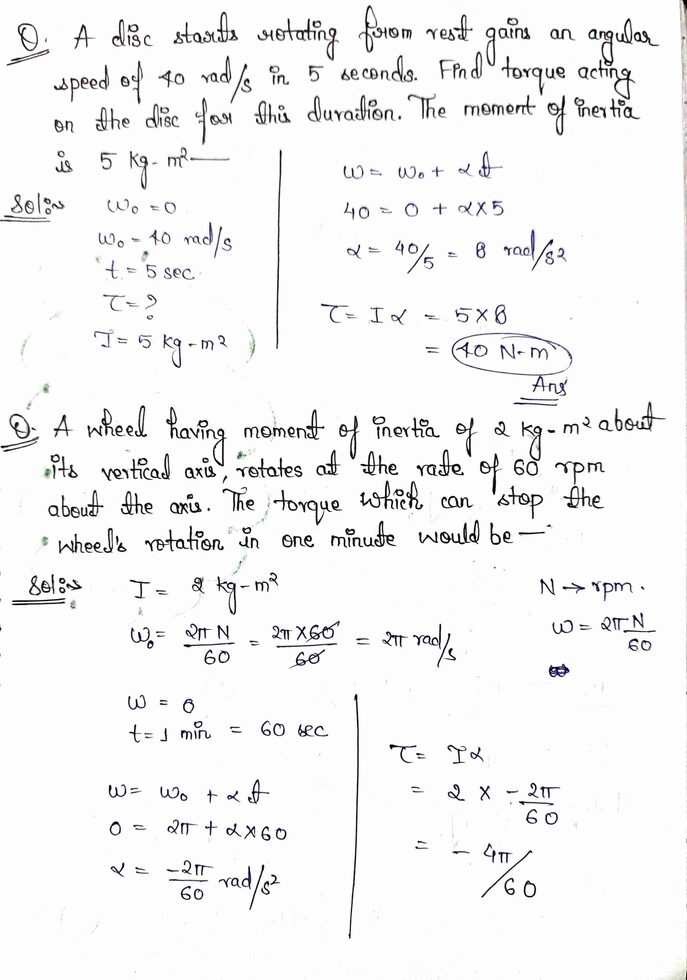 Q. A disc starts rotating from rest gains an angular
speed of 40 rad/s in 5 seconds. Find torque acting
on the disc for this duration. The moment of inertia
is 5 kg-m² —
Soln:
ω₀ = 0
ω₀ = 40 rad/s
t = 5 sec
τ = ?
I = 5 kg-m²
ω = ω₀ + αt
40 = 0 + α×5
α = 40/5 = 8 rad/s²
τ = Iα = 5×8
= 40 N-m
Ans
Q. A wheel having moment of inertia of 2 kg-m² about
its vertical axis, rotates at the rate of 60 rpm
about the axis. The torque which can stop the
wheel's rotation in one minute would be —
Soln: I = 2 kg-m²
N → rpm.
ω₀ = 2πN/60 = 2π×60/60 = 2π rad/s
ω = 2πN/60
ω = 0
t = 1 min = 60 sec
ω = ω₀ + αt
0 = 2π + α×60
α = -2π/60 rad/s²
τ = Iα
= 2 × -2π/60
= - 4π/60